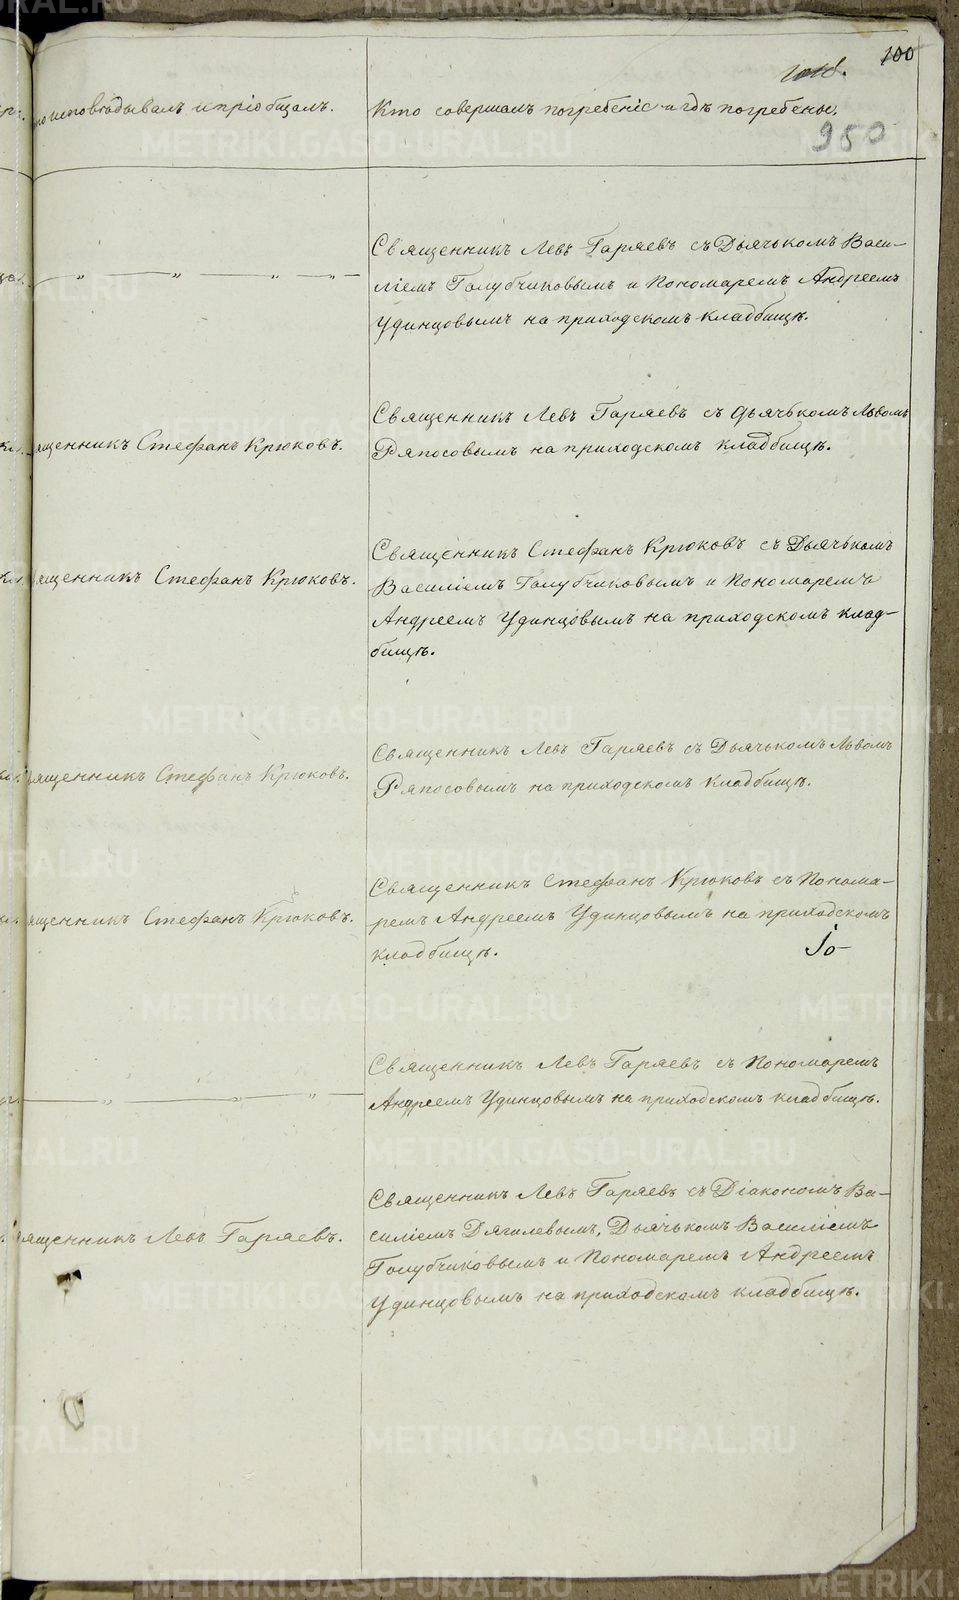 100
950
исповѣдывалъ и пріобщалъ.
Кто совершалъ погребеніе и гдѣ погребены.
Священникъ Левъ Гаряевъ съ Дьячькомъ Васи-
ліемъ Голубчиковымъ и Пономаремъ Андреемъ
Удинцовымъ на приходскомъ кладбищѣ.
ященникъ Стефанъ Крюковъ.
Священникъ Левъ Гаряевъ съ дьячькомъ Львомъ
Ряпосовымъ на приходскомъ кладбищѣ.
ященникъ Стефанъ Крюковъ.
Священникъ Стефанъ Крюковъ съ Дьячькомъ
Василіемъ Голубчиковымъ и Пономаремъ
Андреемъ Удинцовымъ на приходскомъ клад-
бищѣ.
ященникъ Стефанъ Крюковъ.
Священникъ Левъ Гаряевъ съ Дьячькомъ Львомъ
Ряпосовымъ на приходскомъ кладбищѣ.
ященникъ Стефанъ Крюковъ.
Священникъ Стефанъ Крюковъ съ Понома-
ремъ Андреемъ Удинцовымъ на приходскомъ
кладбищѣ.
Священникъ Левъ Гаряевъ съ Пономаремъ
Андреемъ Удинцовымъ на приходскомъ кладбищѣ.
ященникъ Левъ Гаряевъ.
Священникъ Левъ Гаряевъ съ Діакономъ Ва-
силіемъ Дягилевымъ, Дьячькомъ Василіемъ
Голубчиковымъ и Пономаремъ Андреемъ
Удинцовымъ на приходскомъ кладбищѣ.
METRIKI.GASO-URAL.RU